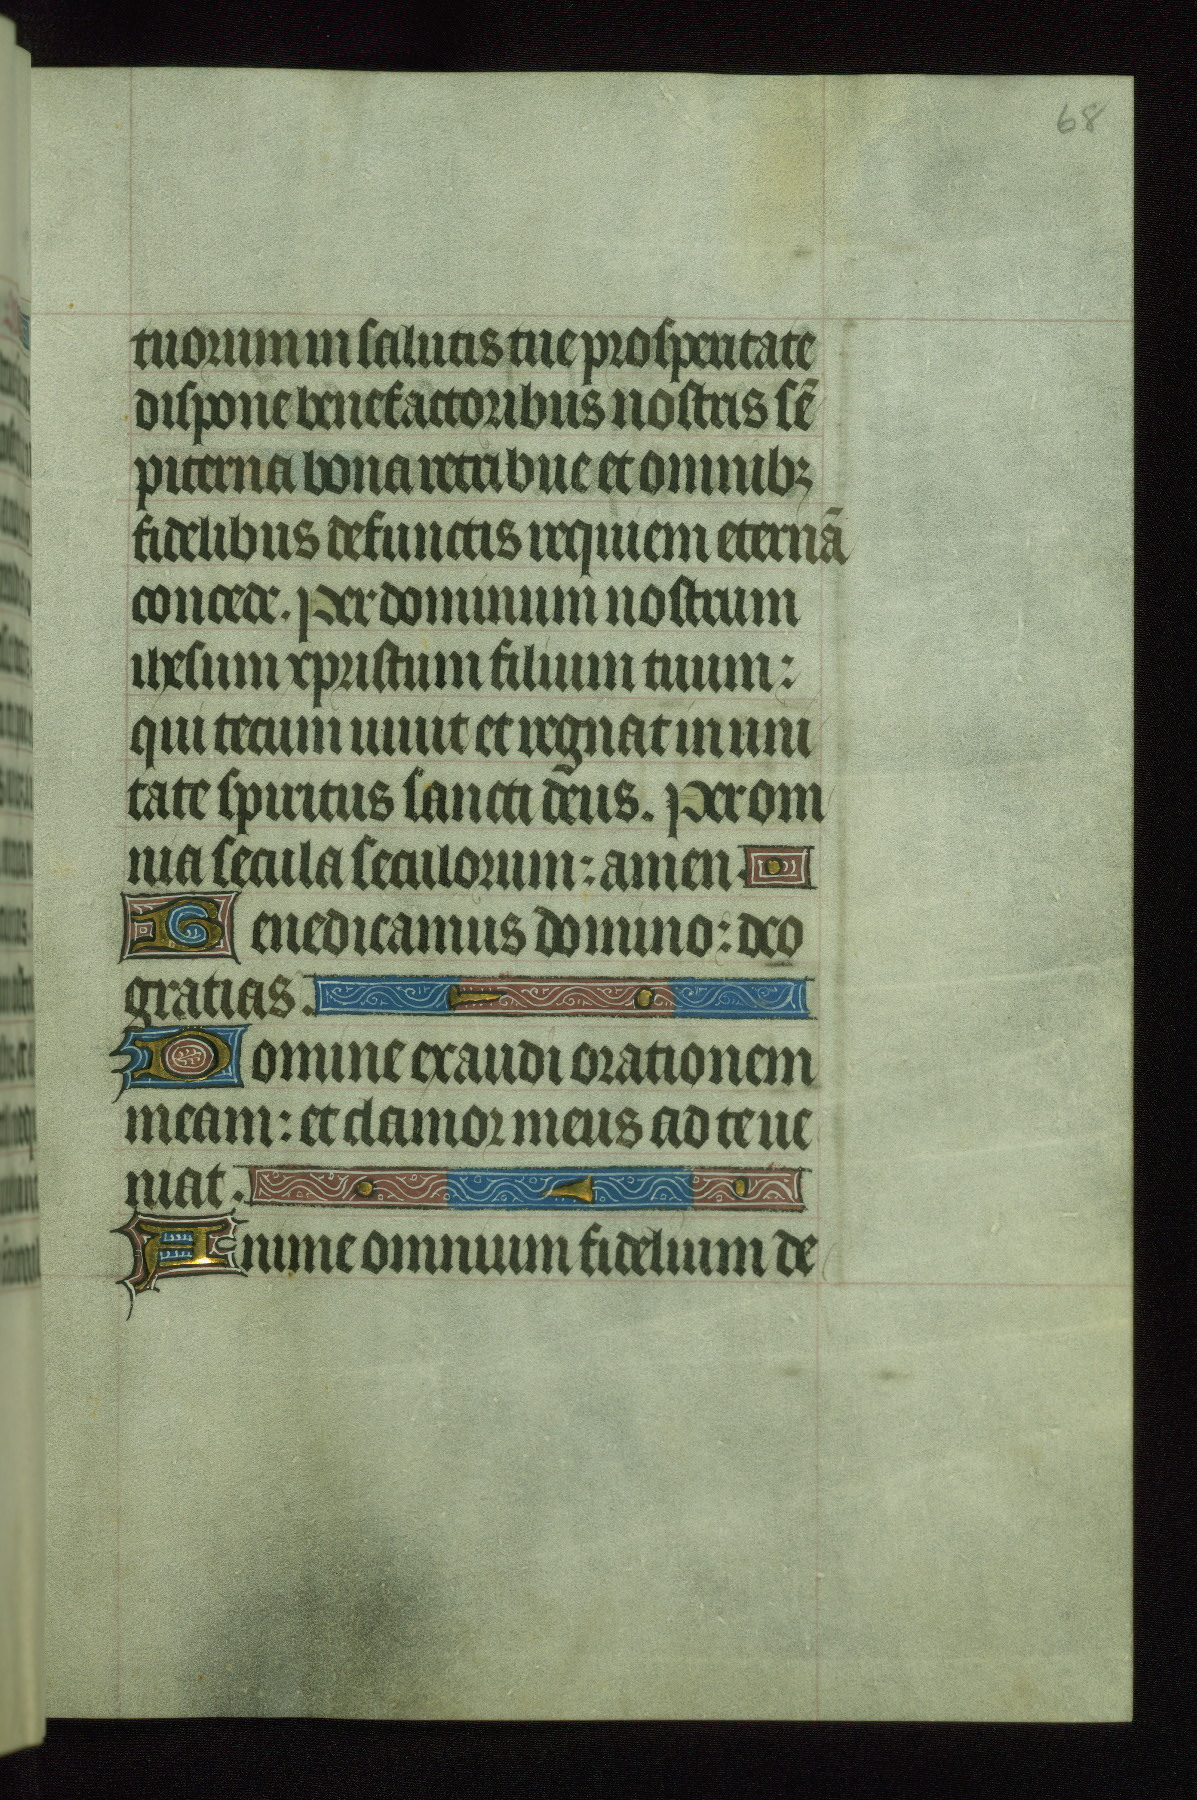 68
tuorum in salutis tue prosperitate
dispone benefactoribus nostris sē
piterna bona retribue et omnibꝫ
fidelibus defunctis requiem eternā
concede. Per dominum nostrum
ihesum xpristum filium tuum:
qui tecum uiuit et regnat in uni
tate spiritus sancti deus. Per om
nia secula seculorum: amen
Benedicamus domino: deo
gratias.
Domine exaudi orationem
meam: et clamor meus ad te ue
niat.
Anime omnium fidelium de